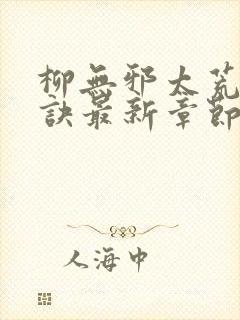 柳無邪太荒
訣最新章節
人海中